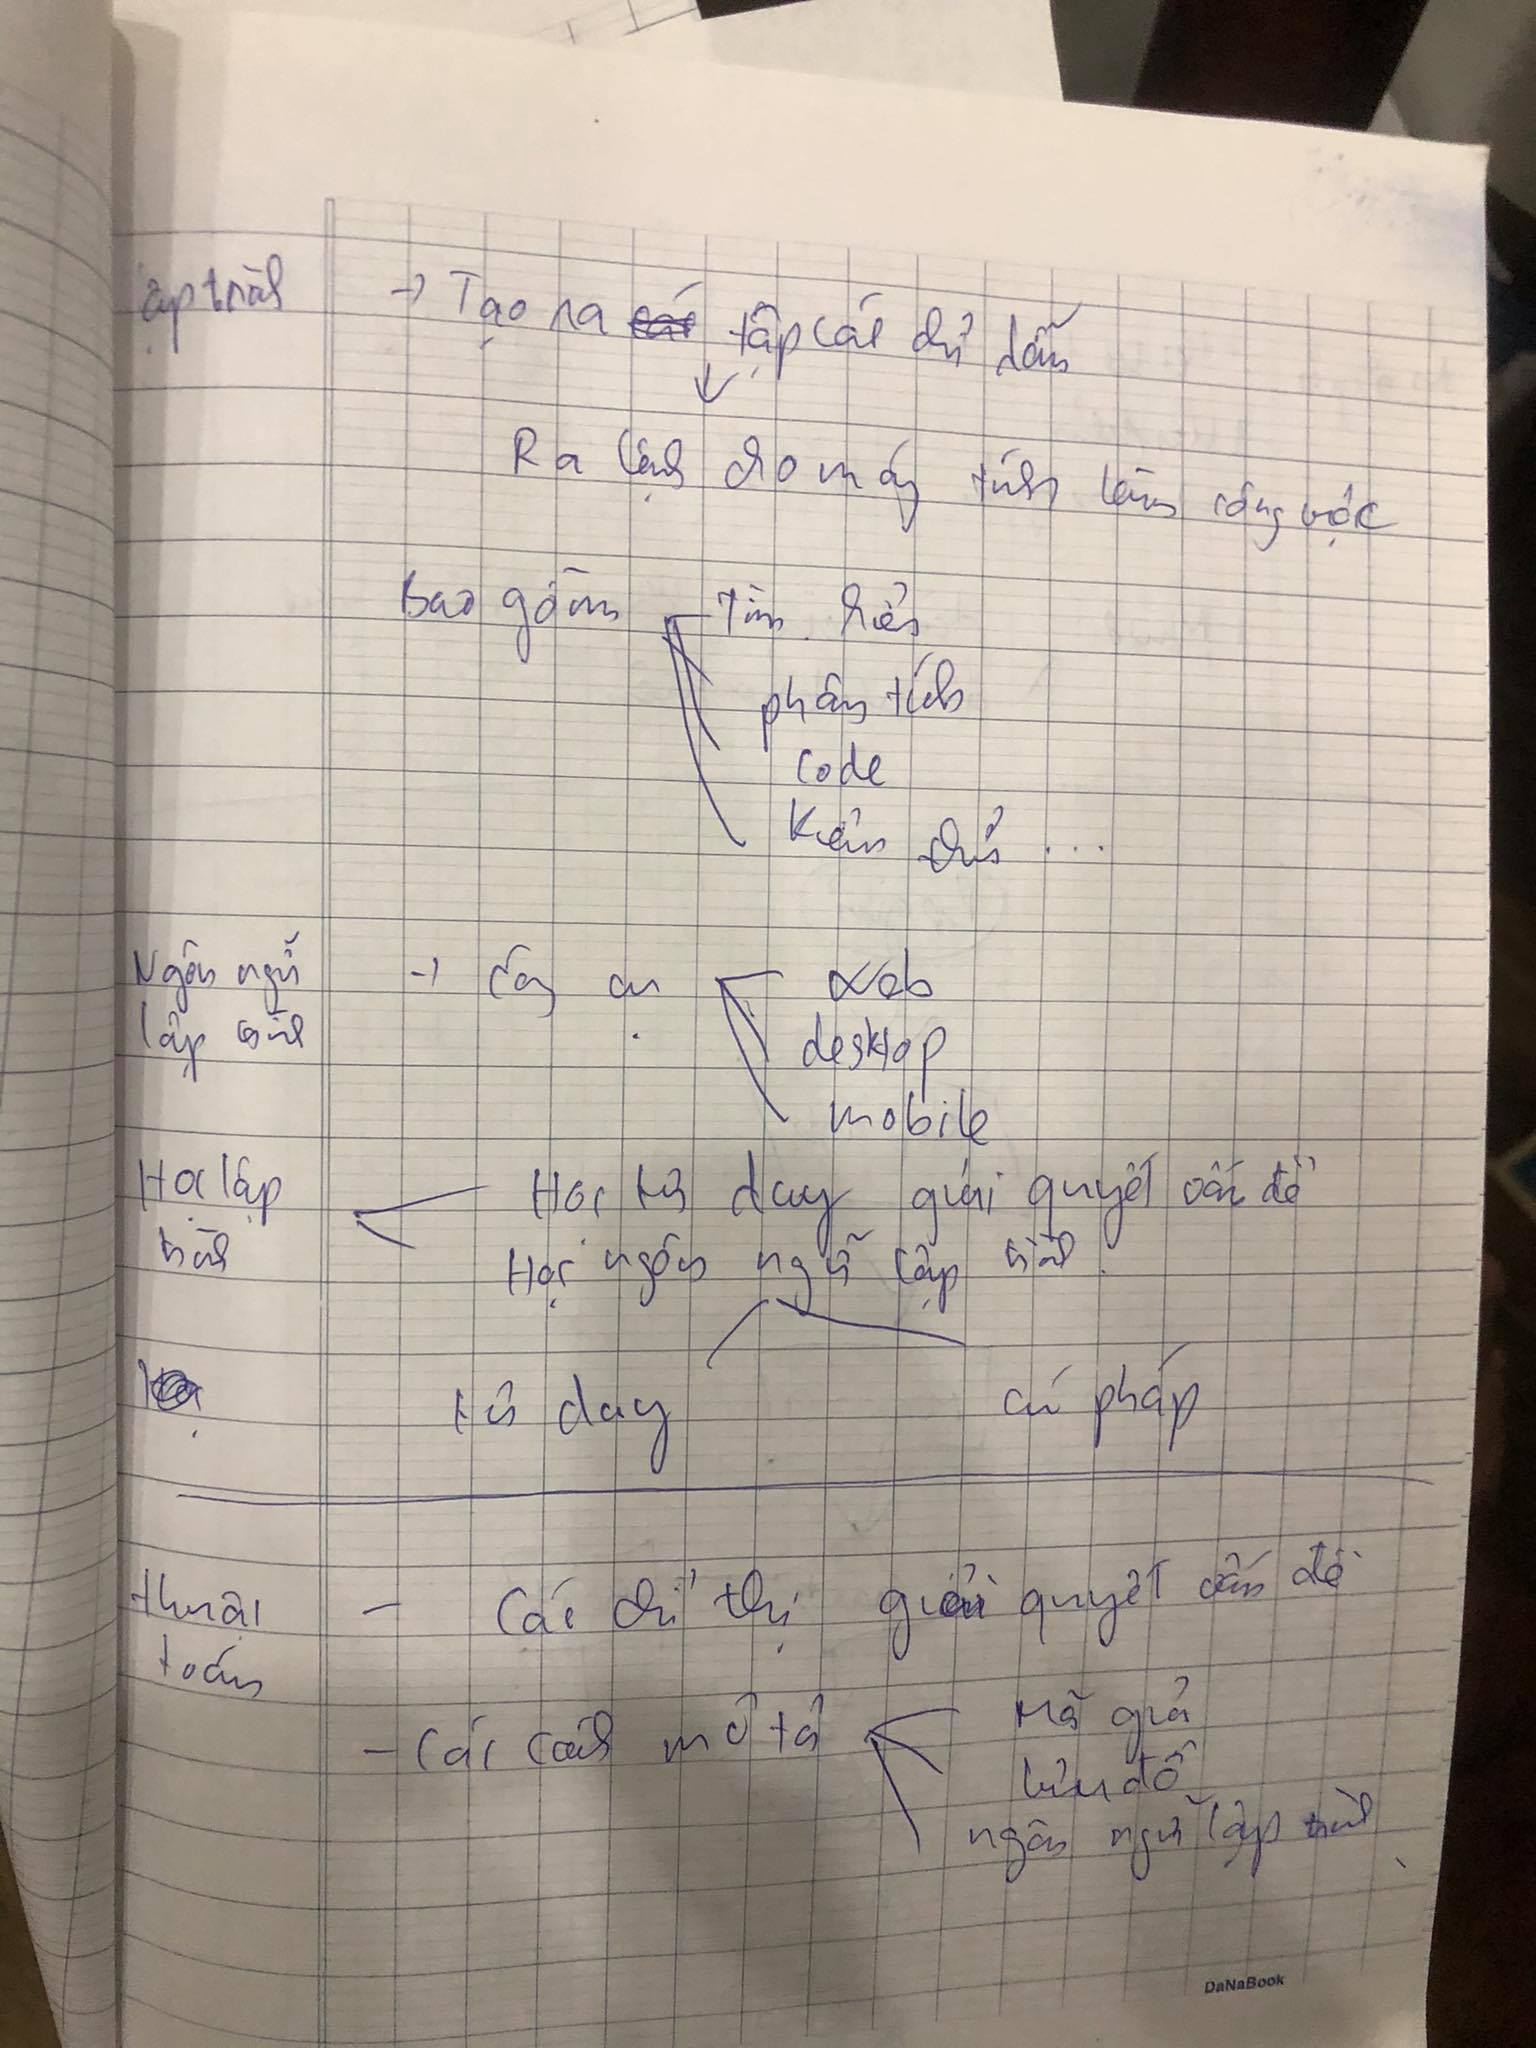 Lập trình → Tạo ra tập các chỉ dẫn
Ra lệnh cho máy tính làm công việc
Bao gồm Tìm hiểu
phân tích
code
Kiểm thử ...
Ngôn ngữ → Công cụ Web
lập trình desktop
mobile
Học lập Học tư duy giải quyết vấn đề
trình Học ngôn ngữ lập trình.
tư duy cú pháp
thuật - Các chỉ thị giải quyết vấn đề
toán
- Các cách mô tả Mã giả
lưu đồ
ngôn ngữ lập trình
DaNaBook